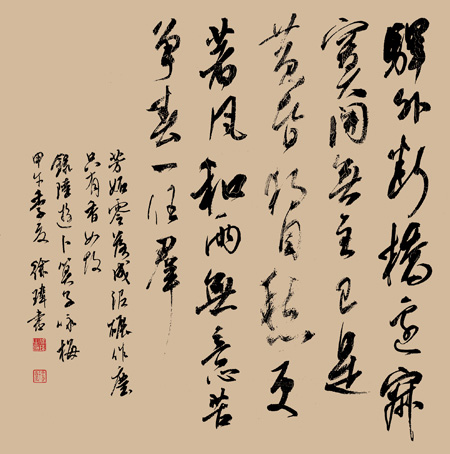 驛外斷橋邊寂
寞開無主已是
黃昏獨自愁更
著風和雨無意苦
爭春一任羣
芳妬零落成泥碾作塵
只有香如故
錄陸游卜算子咏梅
甲午季夏徐瑋書